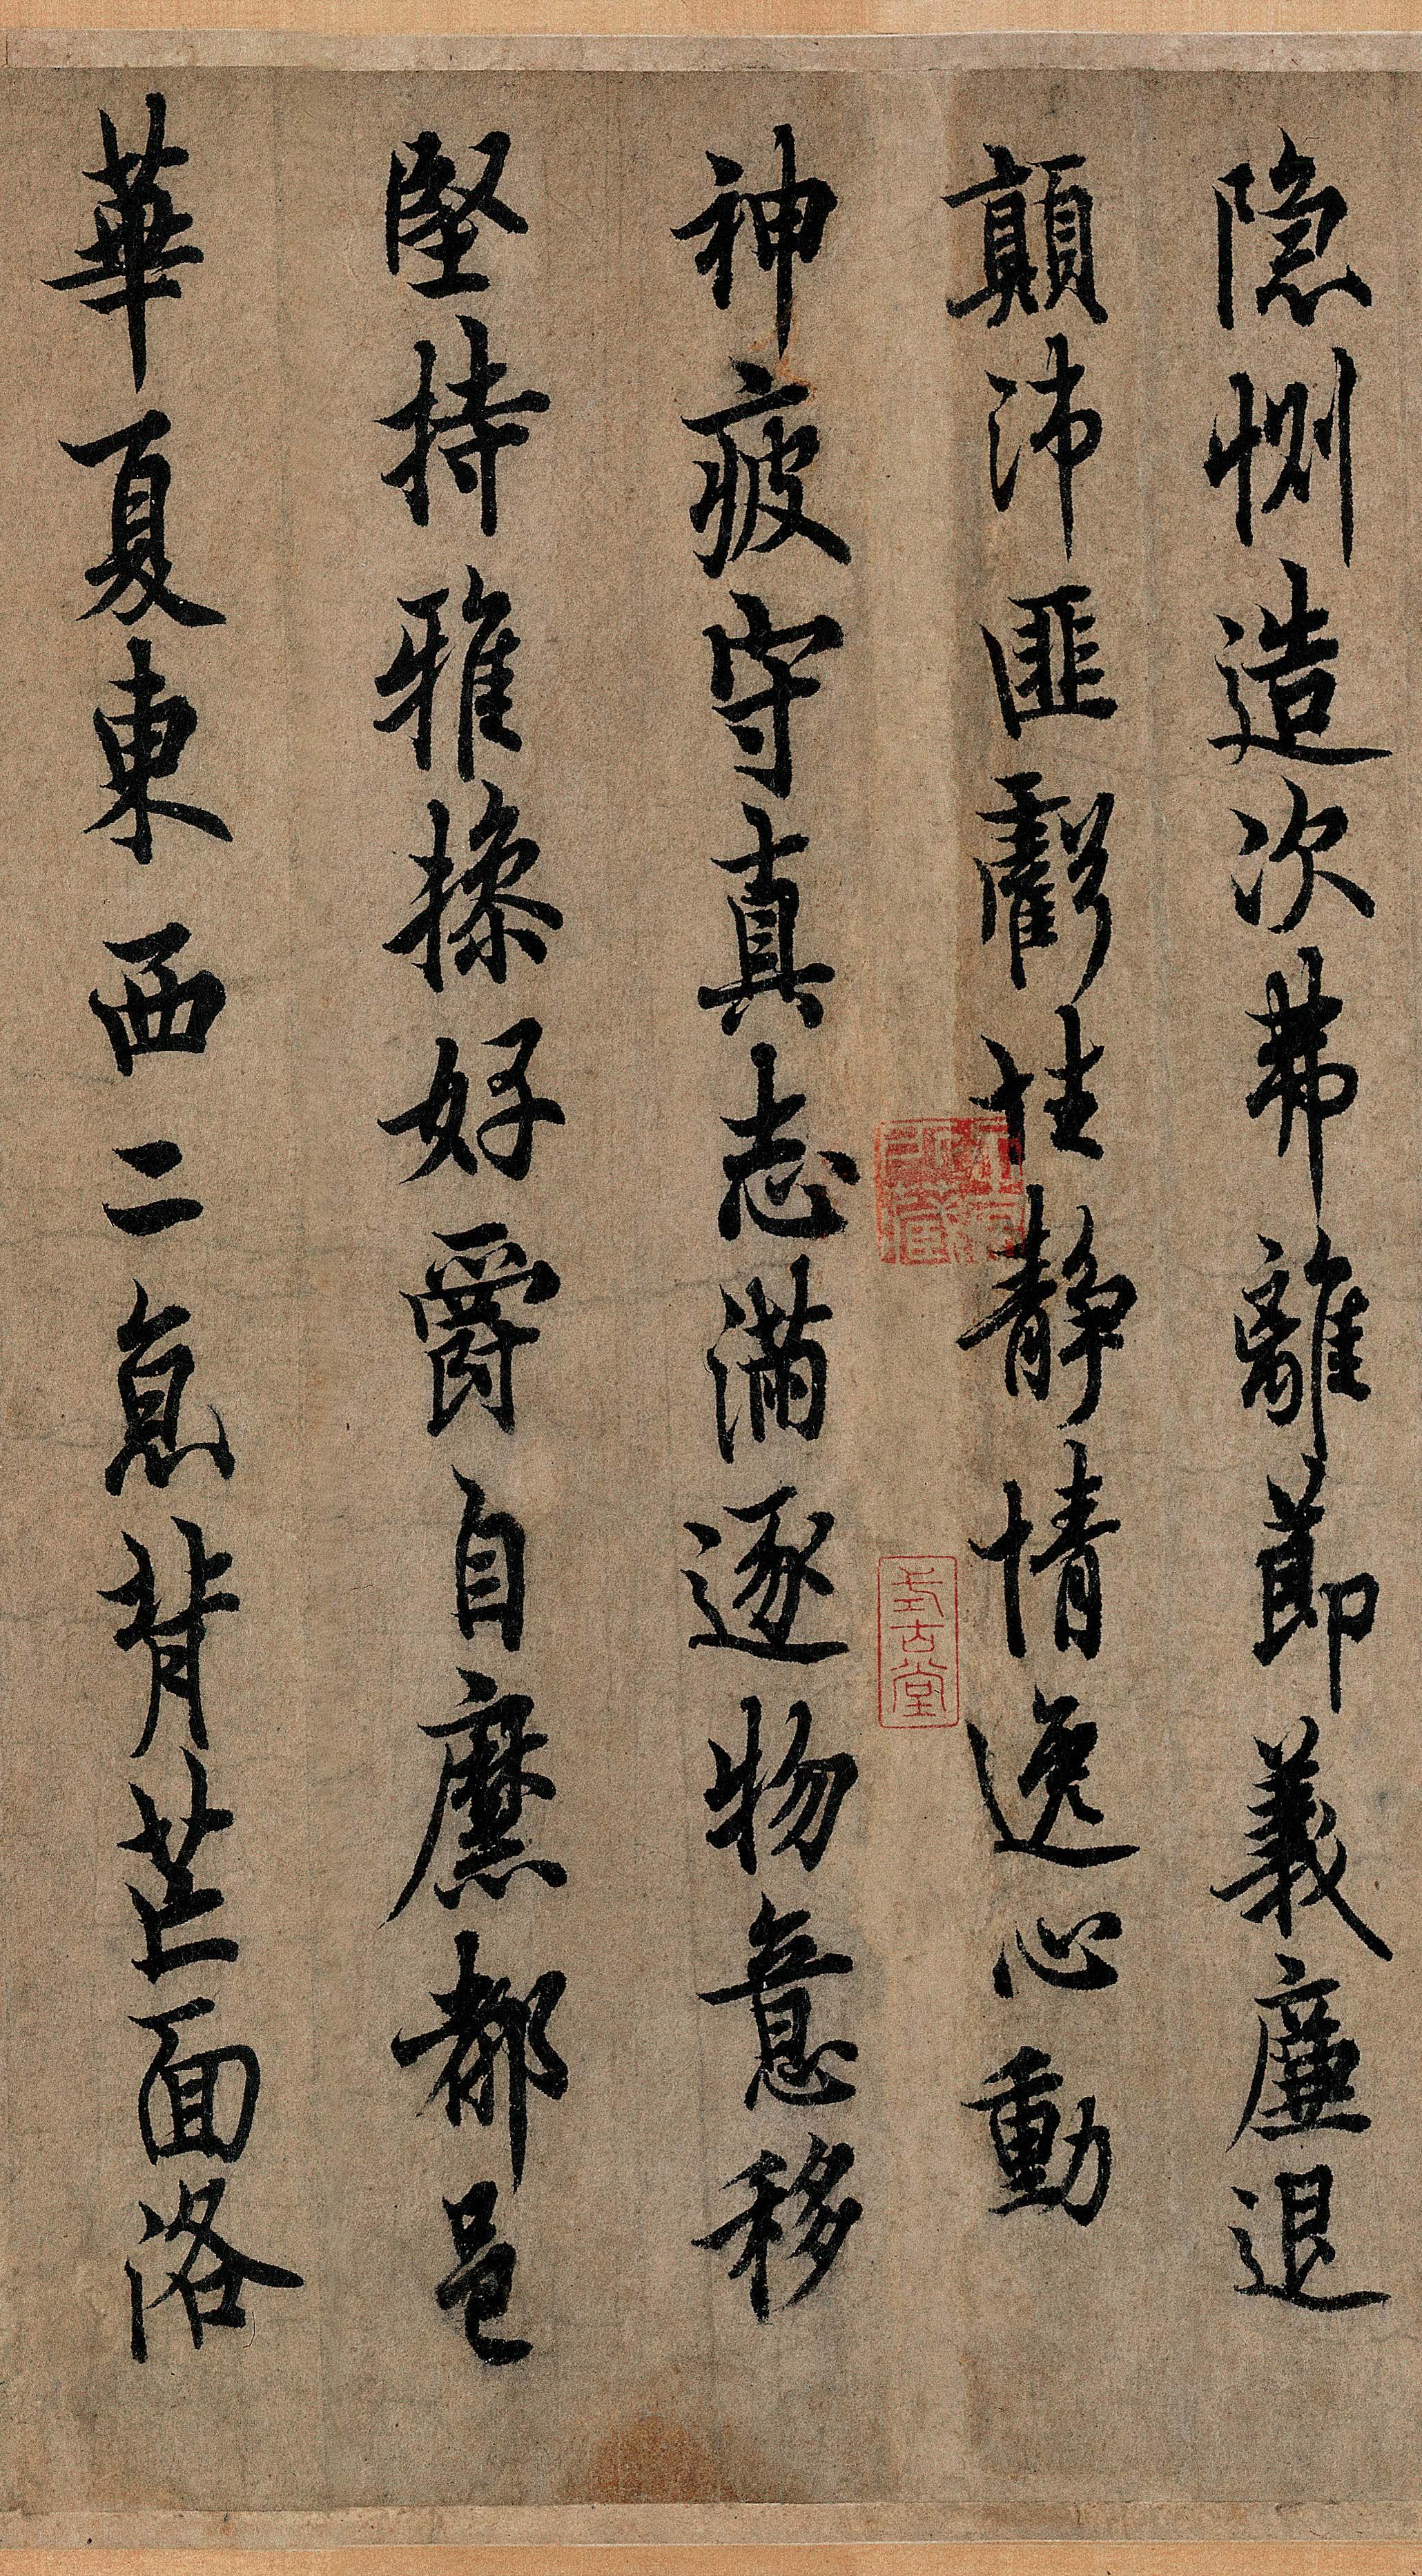 隐惻造次弗離節義廉退
顛沛匪虧性静情逸心動
神疲守真志滿逐物意移
堅持雅操好爵自縻都邑
華夏東西二京背芒面洛
式古堂